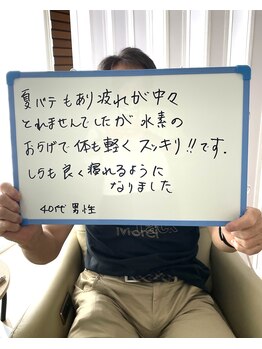 夏バテもあり疲れが中々
とれませんでしたが水素の
おかげで体も軽くスッキリ!!です。
しかも良く寝れるように
なりました
40代 男性